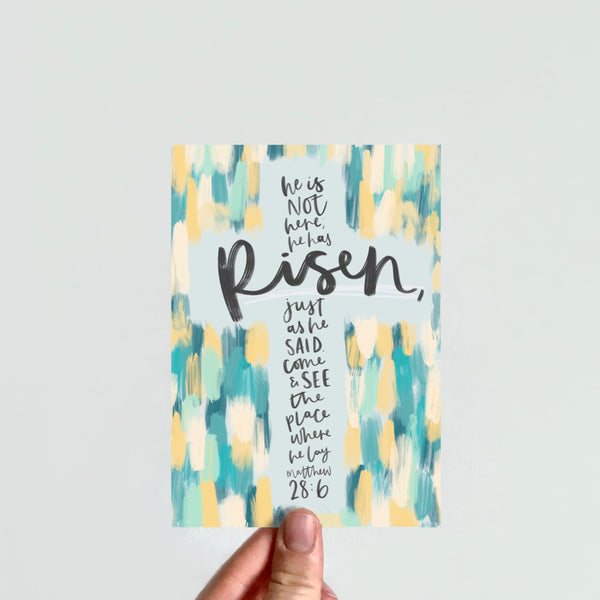 he is
NOT
here;
he has
Risen,
just
as he
SAID.
Come
& SEE
the
place
where
he lay
matthew
28:6